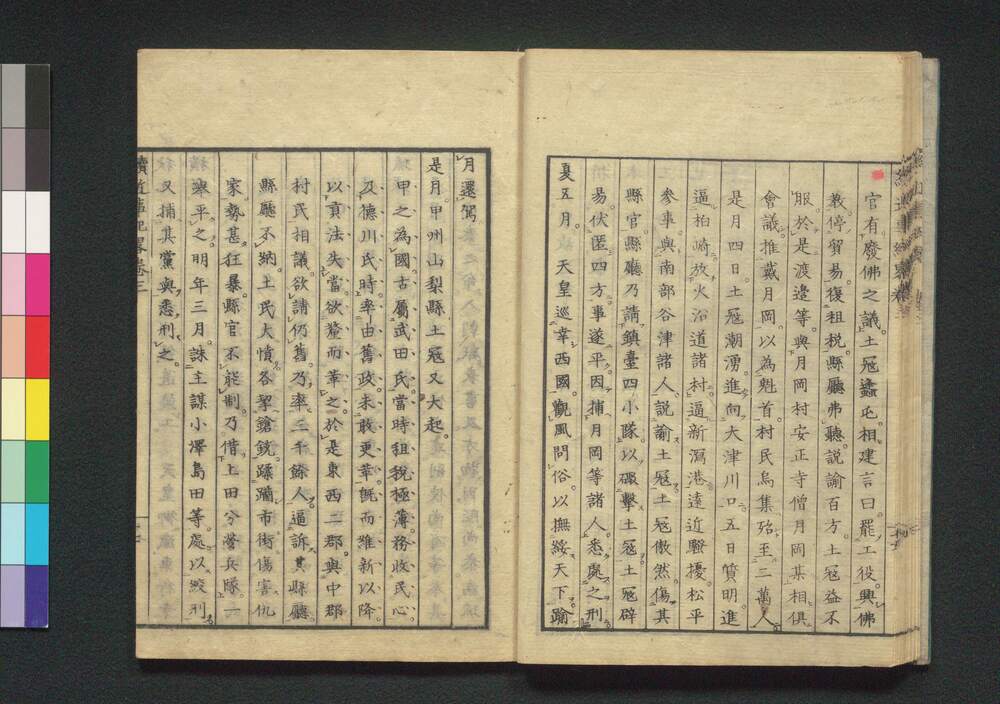 官有廢佛之議。土冦蠭屯。相建言曰。罷工役。興佛
教。停貿易。復租税。縣廳弗聽。説諭百方。土冦益不
服。於是渡邉等。與月岡村安正寺僧月岡某相倶
會議。推戴月岡。以為魁首。村民烏集。殆至二萬人。
是月四日。土冦潮湧。進向大津川口。五日質明。進
逼柏崎。放火沿道諸村。逼新瀉港。遠近騒擾。松平
參事。與南部谷津諸人。説諭土冦。土冦傲然。傷其
縣官。縣廳乃請鎮臺四小隊。以礟擊土冦。土冦辟
易。伏匿四方。事遂平。因捕月岡等諸人。悉處之刑。
夏五月。天皇巡幸西國。觀風問俗。以撫綏天下。踰
月還駕。
是月。甲州山梨縣土冦又大起。
甲之為國。古屬武田氏。當時租税極薄。務收民心。
及德川氏時。率由舊政。未敢更革。慨而維新以降。
以貢法失當。欲釐而革之。於是東西二郡。與中郡
村民相議。欲請仍舊。乃率三千餘人。逼訴其縣廳。
縣廳不納。土民大憤。各挈鎗銃。蹂躪市街。傷害仇
家。勢甚狂暴。縣官不能制。乃借上田分營兵隊。一
弾平之。明年三月。誅主謀小澤島田等。處以絞刑。
又捕其黨與。悉刑之。
續近事紀畧卷三